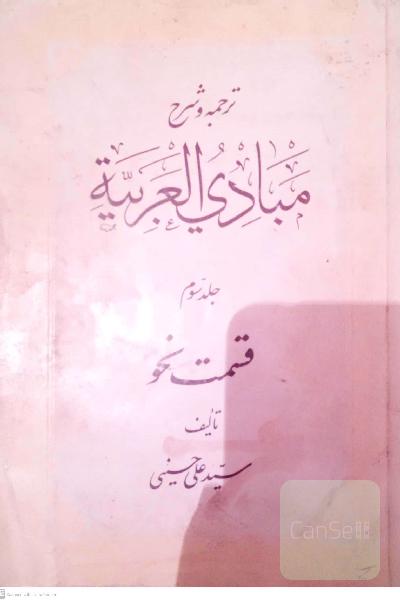 ترجمه و شرح
مَبَادِئُ العَرَبِيَّةِ
جلد سوم
قسمت نحو
تألیف
سیّد علی حسینی
CanSell